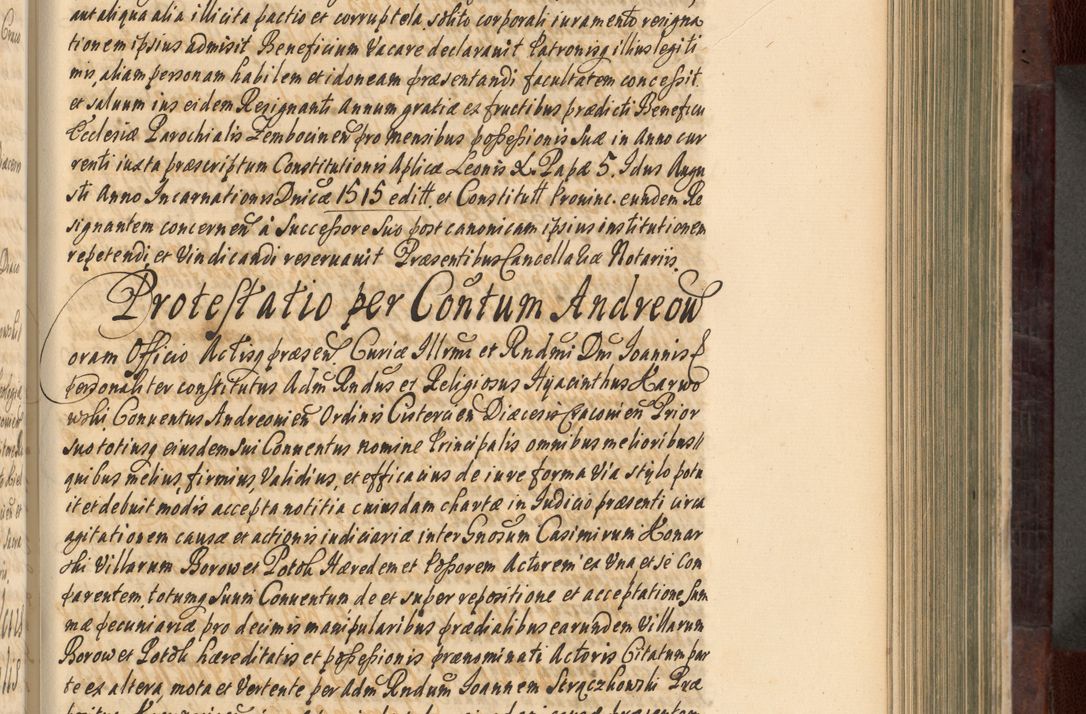 aut aliqua alia illicita pactio et corruptela solito corporali iuramento resigna
tionem ipsius admisit Beneficium Vacare declarauit Patronisq illius legiti
mis, aliam personam habilem et idoneam præsentandi facultatem concessit.
et saluum ius eidem Resignanti Annum gratiæ ex fructibus prædicti Beneficii
Ecclesiæ Parochialis Zembocinen pro mensibus possessionis suæ in Anno cur
renti iuxta præscriptum Constitutionis Aplicæ Leonis X. Papæ 5. Idus Augu
sti Anno Incarnationis Dnicæ 1515 editt. et Constitutt Prouinc. eundem Re
signantem concernen à Successore suo post canonicam ipsius institutionem
repetendi et Vindicandi reseruauit Præsentibus Cancellariæ Notariis.
Protestatio per Contum Andreou
oram Officio Actisq præsen Curiæ Illrmi et Rndmi Dni Joannis
personaliter constitutus Adm Rndus et Religiosus Hyacinthus Karwo
wski Conuentus Andreouien Ordinis Cistercien Diæcesis Cracouien Prior
suo totiusq eiusdem sui Conuentus nomine Principalis omnibus melioribus
quibus melius, firmius Validius, et efficacius de iure forma Via stylo potu
it et debuit modis accepta notitia cuiusdam chartæ in Iudicio præsenti circa
agitationem causæ et actionis iudiciariæ inter Gnosum Casimirum Konar
ski Villarum Borow et Potok Hæredem et Possorem Actorem ex Vna et se com
parentem, totumq suum Conuentum de et super repositione et acceptatione sum
mæ pecuniariæ pro decimis manipularibus prædialibus earundem Villarum
Borow et Potok hæreditatis et possessionis prænominati Actoris Citatum par
te ex altera, mota et Vertente per Adm Rndum Joannem Strączkowski Præ